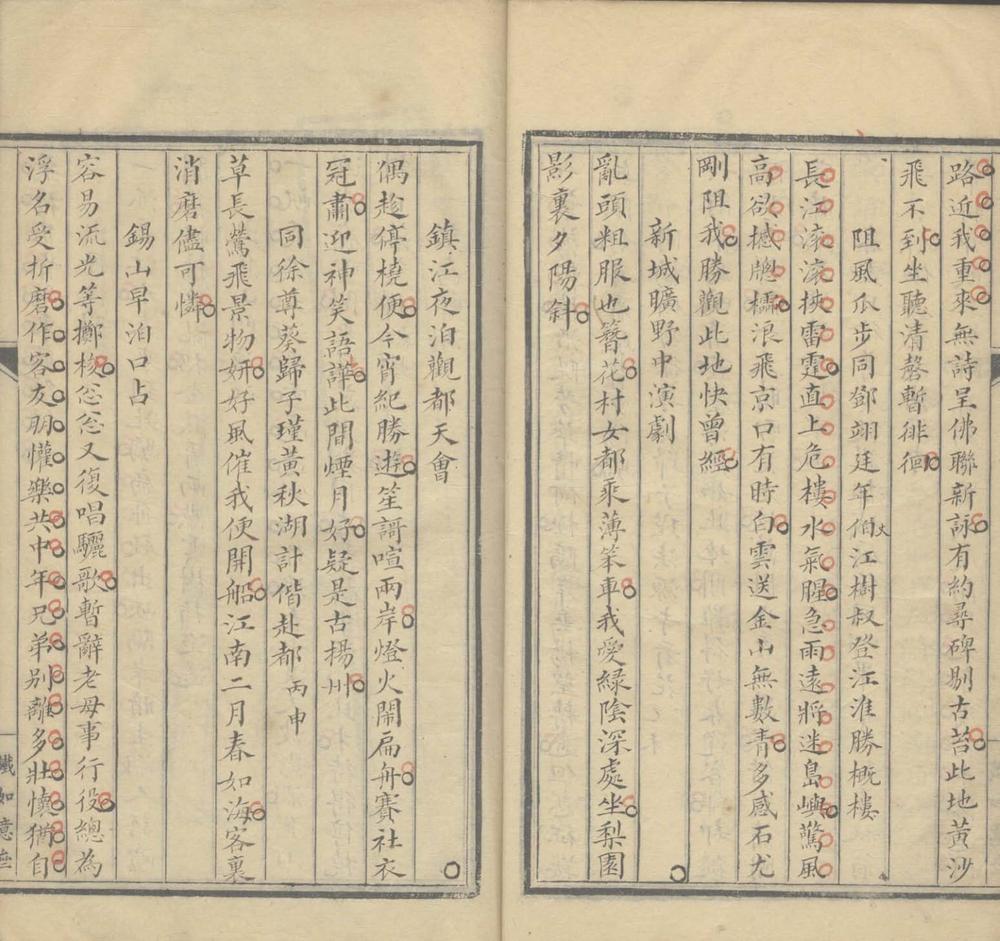 路近我重來無詩呈佛聯新詠有約尋碑剔古苔此地黃沙
飛不到坐聽清磬暫徘徊
阻風瓜步同鄧翊廷年伯丈江樹叔登江淮勝概樓
長江滾滾挾雷霆直上危樓水氣腥急雨遠將迷島嶼驚風
高欲撼牕櫺浪飛京口有時白雲送金山無數青多感石尤
剛阻我勝觀此地快曾經
新城曠野中演劇
亂頭粗服也簪花村女都乘薄笨車我愛綠陰深處坐梨園
影裏夕陽斜
鎮江夜泊觀都天會
偶趁停橈便今宵紀勝遊笙謌喧兩岸燈火鬧扁舟賽社衣
冠肅迎神笑語譁此間煙月好疑是古揚州
同徐尊葵歸子瑾黃秋湖計偕赴都丙申
草長鶯飛景物妍好風催我便開船江南二月春如海客裏
消磨儘可憐
錫山早泊口占
容易流光等擲梭怱怱又復唱驪歌暫辭老母事行役總為
浮名受折磨作客友朋懽樂共中年兄弟別離多壯懷猶自
鐵如意